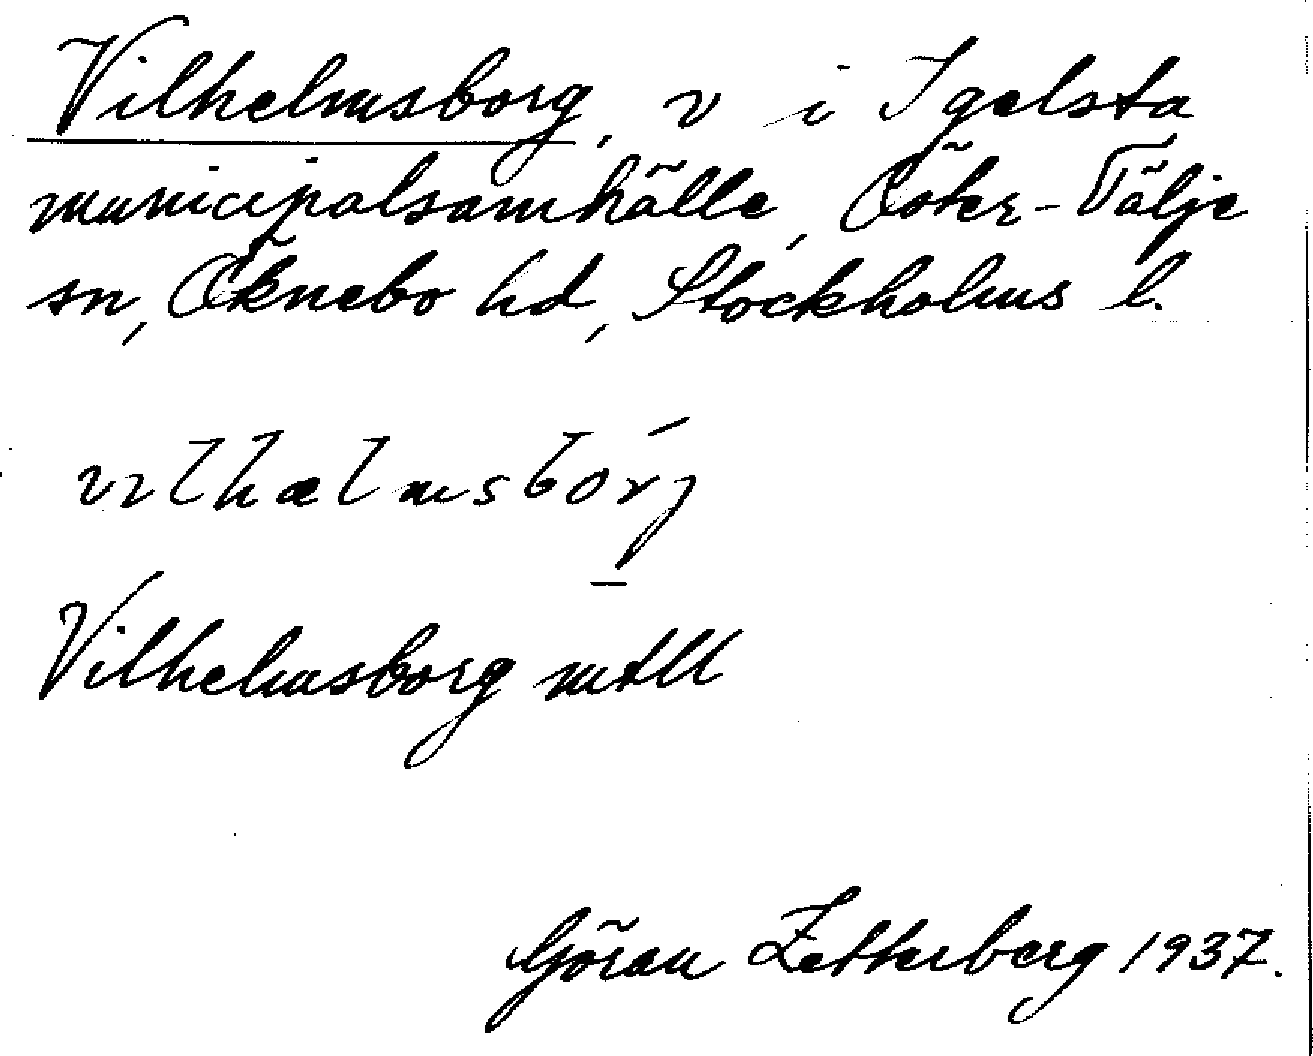 Vilhelmsborg, v i Igelsta
municipalsamhälle, Öster-Tälje
sn, Öknebo hd, Stockholms l.
vılhælmsbórj
Vilhelmsborg mtll
Göran Zetterberg 1937.